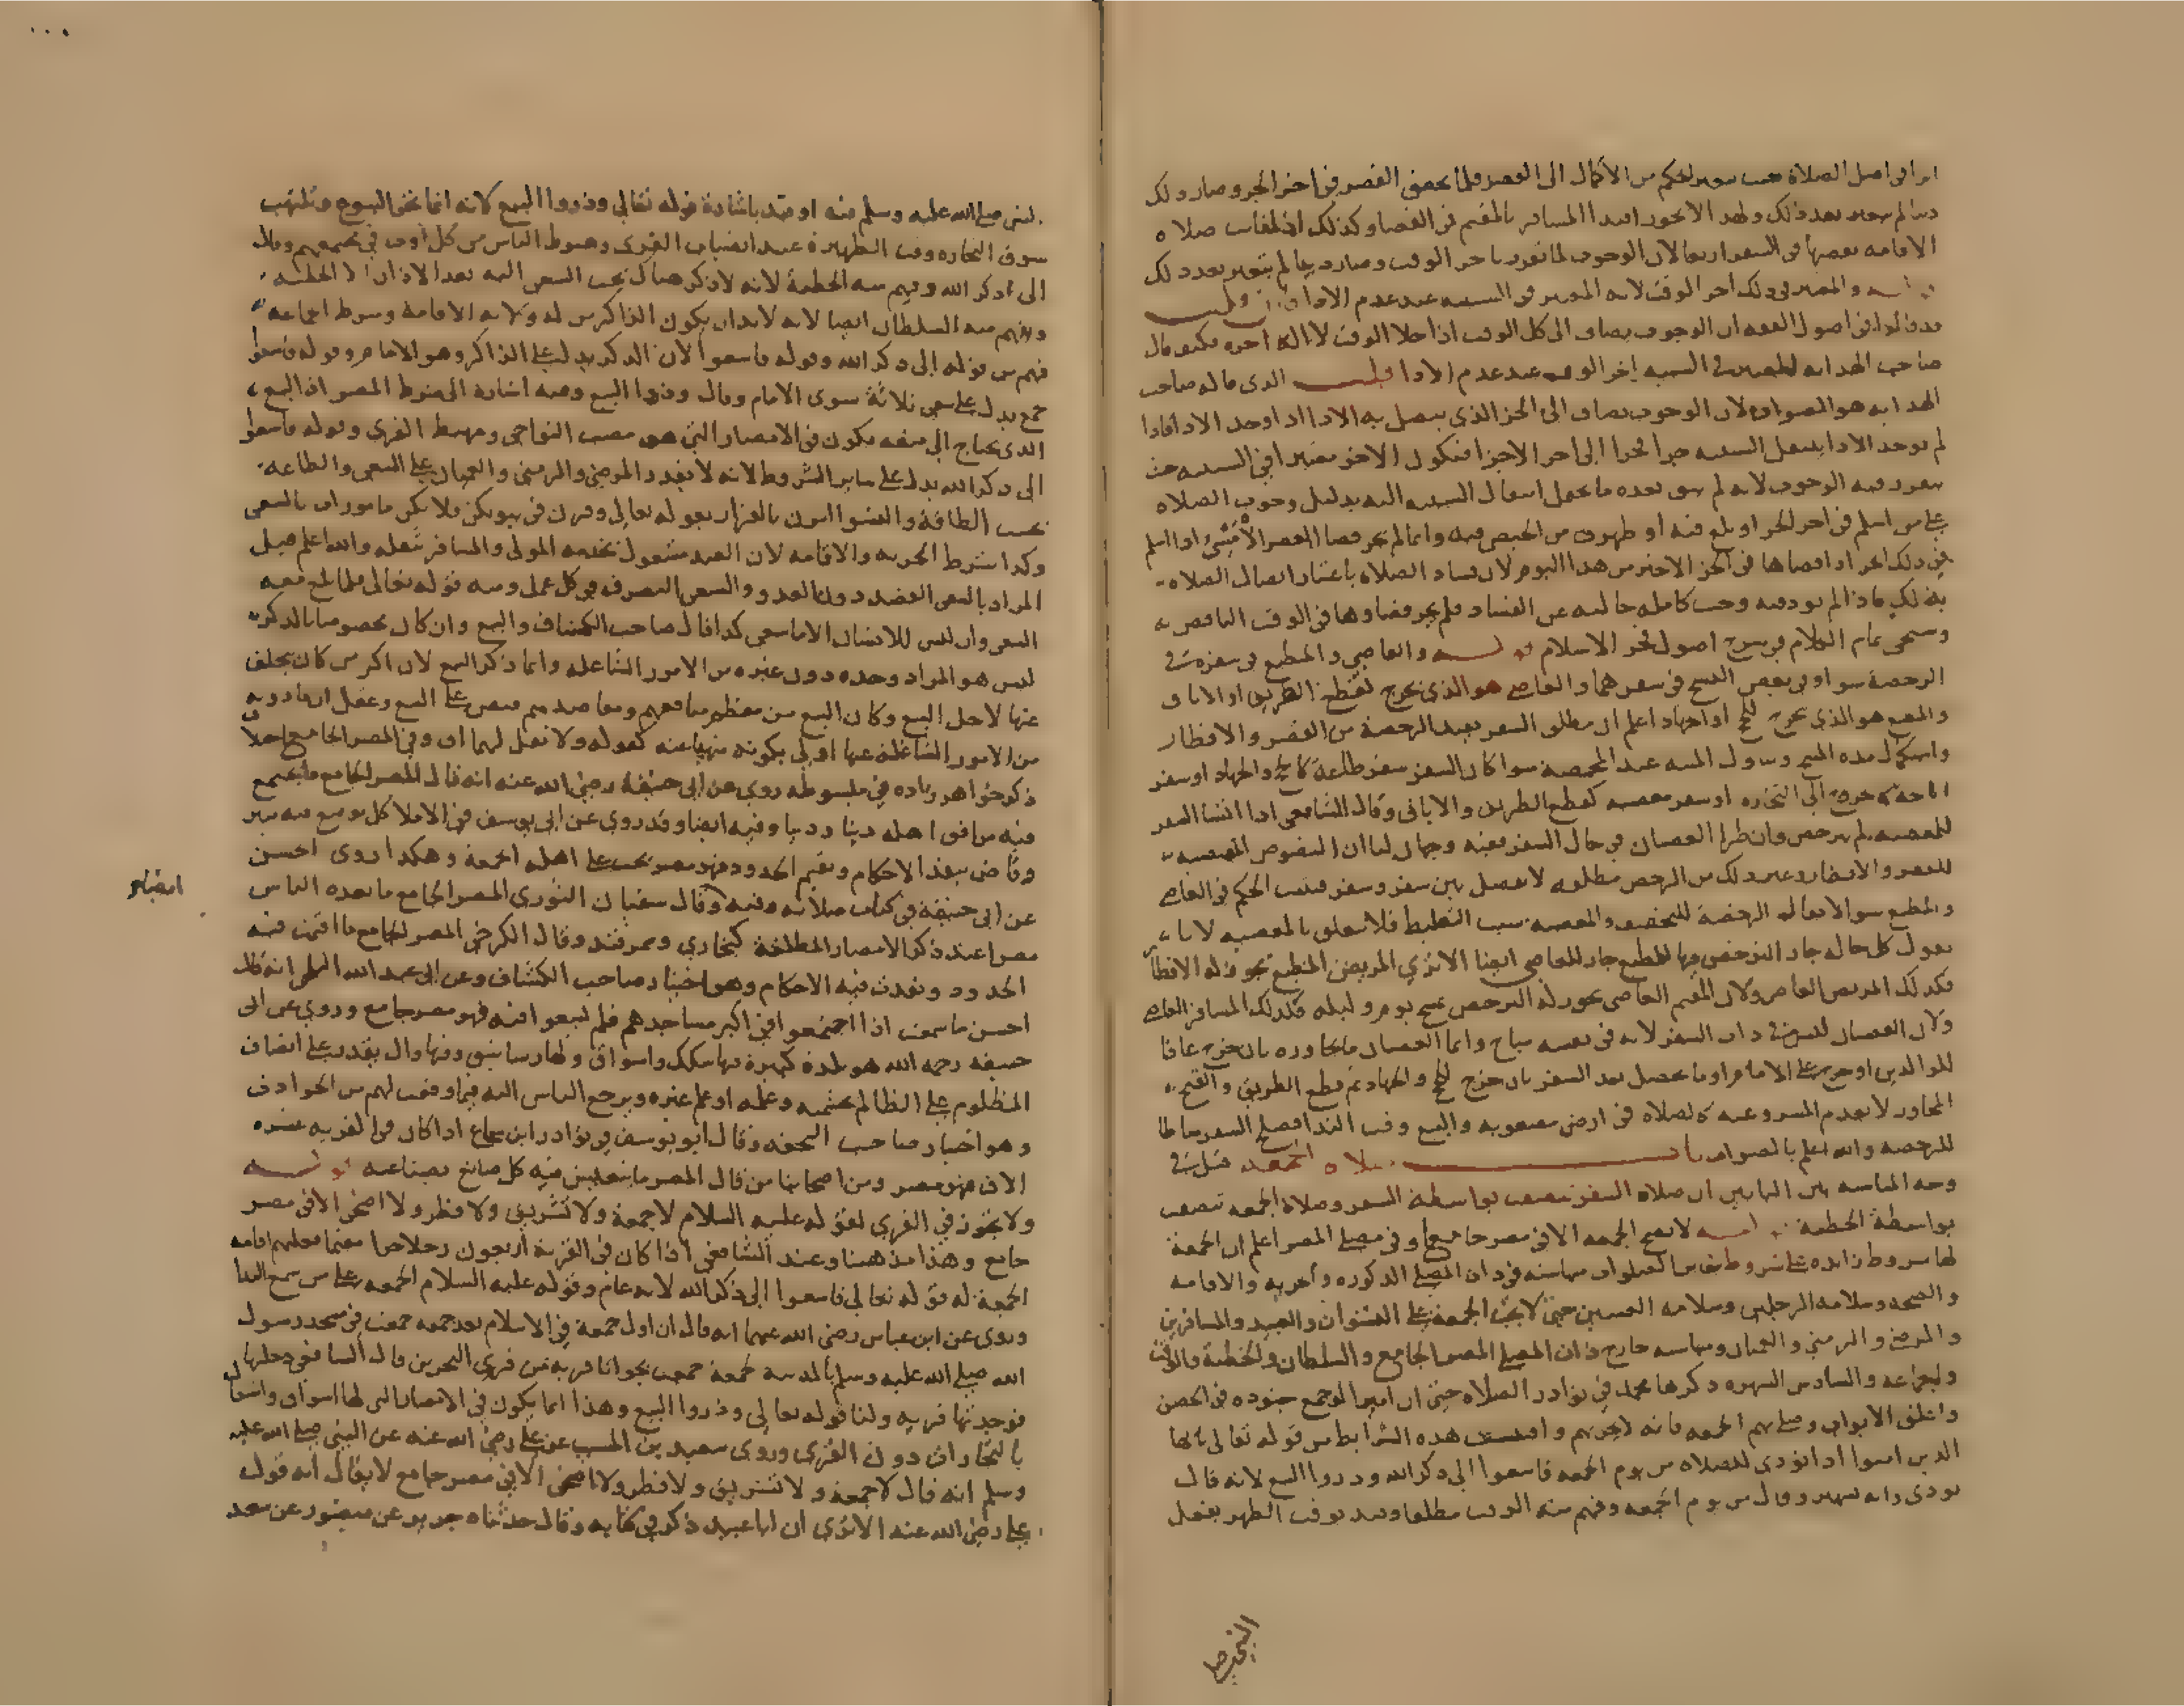 اثرا في اصل الصلاة حيث تغير الحكم من الاكمال الى القصر فلما تحقق القصر في اخر الجزو صار ذلك
دينا لم يتغير بعد ذلك ولهذا لا يجوز اقتدا المسافر بالمقيم في القضا وكذلك اذا فاتت صلاه
الاقامه يقضيها في السفر اربعا لان الوجوب لما تقرر باخر الوقت وصار دينا لم يتغير بعد ذلك
قوله والمعتبر في ذلك اخر الوقت لانه المعتبر في السببيه عند عدم الادا
قد قالوا في اصول الفقه ان الوجوب يضاف الى كل الوقت اذا خلا الوقت لا الى اخره فكيف قال
صاحب الهدايه المعتبر في السببيه اخر الوقت عند عدم الادا قلت الذي قاله صاحب
الهدايه هو الصواب لان الوجوب يضاف الى الجز الذي يتصل به الادا اذا وجد الادا فاذا
لم يوجد الادا ينتقل السببيه جزا فجزا الى اخر الاجزا فيكون الاخر معتبرا في السببيه حيث
يتقرر فيه الوجوب لانه لم يبق بعده ما يحتمل انتقال السببيه اليه بدليل وجوب الصلاه
على من اسلم في اخر الجز او بلغ فيه او طهرت من الحيض فيه وانما لم يجز قضا العصر الامسي اذا اسلم
في ذلك الجز اذا قضاها في الجز الاخير من هذا اليوم لان فساد الصلاه باعتبار اتصال الصلاه
بذلك فاذا لم يود فيه وجب كامله خاليه عن الفساد فلم يجز قضاوها في الوقت الناقص
وسيجي تمام الكلام في شرح اصول فخر الاسلام قوله والعاصي والمطيع في سفره في
الرخصة سوا وفي بعض النسخ في سفرهما والعاصي هو الذي يخرج لقطع الطريق او الاباق
والمطيع هو الذي يخرج لحج او جهاد اعلم ان مطلق السفر يفيد الرخصة من القصر والافطار
واستكمال مده المسح وتناول الميته عند المخمصه سوا كان السفر سفر طاعة كالحج والجهاد او سفر
اباحه كمن خرج الى التجاره او سفر معصيه كقطع الطريق والاباق وقال الشافعي اذا انشا السفر
للمعصيه لم يترخص وان طرا العصيان في حال السفر ففيه وجهان لنا ان النصوص المقتضيه
للقصر والافطار وغير ذلك من الرخص مطلقه لا تفصل بين سفر وسفر فيثبت الحكم في العاصي
والمطيع سوا لا يقال الرخصة للتخفيف والمعصيه سبب التغليظ فلا يتعلق بالمعصيه لانا
نقول كل حال جاز الترخص فيها للمطيع جاز للعاصي ايضا الا تري المريض المطيع يجوز له الافطار
فكذلك المريض العاصي ولان المقيم العاصي يجوز له الترخص بمسح يوم وليله فكذلك المسافر العاصي
ولان العصيان ليس في ذات السفر لانه في نفسه مباح وانما العصيان ما يجاوره بان خرج عاقا
للوالدين او خرج على الامام او ما يحصل بعد السفر بان خرج للحج والجهاد ثم قطع الطريق والقبح
المجاور لا يعدم المشروعيه كالصلاه في ارض مغصوبه والبيع وقت الندا فصلح السفر مناطا
للرخصه والله اعلم بالصواب باب صلاه الجمعه
وجه المناسبه بين البابين ان صلاه السفر تنصفت بواسطة السفر وصلاة الجمعه تنصفت
بواسطة الخطبة قوله لا تصح الجمعه الا في مصر جامع او في مصلى المصر اعلم ان للجمعة
لها شروط زايده على شروط سائر الصلوات منها سته في ذات المصلي الذكوره والحريه والاقامه
والصحه وسلامه الرجلين وسلامه العينين حتى لا تجب الجمعة على النسوان والعبيد والمسافرين
والمرضى والزمنى والعميان ومنها سته خارج ذات المصلي المصر الجامع والسلطان والخطبة والوقت
والجماعه والسادس الشهره ذكرها محمد في نوادر الصلاة حتى ان اميرا لو جمع جنوده في الحصن
واغلق الابواب وصلى بهم الجمعه فانه لا يجزيهم واقتبست هذه الشرايط من قوله تعالى يا ايها
الذين امنوا اذا نودي للصلاه من يوم الجمعه فاسعوا الى ذكر الله وذروا البيع لانه قال
نودي وانه تشهير وقال من يوم الجمعه وفهم منه الوقت مطلقا وقيد بوقت الظهر بفعل
النبي صلى
النبي صلى الله عليه وسلم منه او قيد باشارة قوله تعالي وذروا البيع لانه انما نحي البيوع وتلتهب
سوق التجاره وقت الظهيرة عند انصباب القري وهبوط الناس من كل اوب في مجمعهم وقال
الى ذكر الله وفهم منه الخطبة لانه لا ذكر هناك يجب السعي اليه بعد الاذان الا الخطبه
ويفهم منه السلطان ايضا لانه لا بد ان يكون الذاكر من له ولايه الاقامة وشرط الجماعه
فهم من قوله الى ذكر الله وقوله فاسعوا لان الذكر يدل على الذاكر وهو الامام وقوله فاسعوا
جمع يدل على سعي ثلاثة سوى الامام وقال وذروا البيع وفيه اشاره الى شرط المصر اذ البيع
الذي يحتاج الى منعه يكون في الامصار التي هي مصب النواحي ومهبط القرى وقوله فاسعوا
الى ذكر الله يدل على ساير الشروط لانه لا يقدر المرضي والزمنى والعميان على السعي والطاعه
بحسب الطاقة والنسوا امرن بالقرار بقوله تعالى وقرن في بيوتكن فلا يكن مامورات بالسعي
وكذا شرط الحريه والاقامه لان العبد مشغول بخدمه المولى والمسافر بشغله والله اعلم قيل
المراد بالسعي القصد دون العدو والسعي التصرف في كل عمل ومنه قوله تعالى فلما بلغ معه
السعي وان ليس للانسان الا ما سعى كذا قال صاحب الكشاف والبيع وان كان مخصوصا بالذكر
ليس هو المراد وحده دون غيره من الامور الشاغله وانما ذكر البيع لان اكثر من كان يتخلف
عنها لاجل البيع وكان البيع من معظم منافعهم ومقاصدهم فنص على البيع وعقل ان ما دونه
من الامور الشاغلة عنها اولى بكونه منهيا عنه كقوله ولا تقل لهما اف وفي المصر الجامع اختلاف
ذكر خواهر زاده في مبسوطه روي عن ابي حنيفة رضي الله عنه انه قال المصر الجامع ما يجتمع
فيه مرافق اهله دينا ودنيا وفيه ايضا وقد روي عن ابي يوسف في الاملا كل موضع فيه منبر
وقاض ينفذ الاحكام ويقيم الحدود فهو مصر تجب على اهله الجمعة وهكذا روى الحسن
عن ابي حنيفة في كتاب صلاته وفيه وقال سفيان الثوري المصر الجامع ما يعده الناس
مصرا عند ذكر الامصار المطلقة كبخاري وسمرقند وقال الكرخي المصر الجامع ما اقيمت فيه
الحدود ونفدت فيه الاحكام وهو اختيار صاحب الكشاف وعن ابي عبد الله البلخي انه قال
احسن ما سمعت اذا اجتمعوا في اكبر مساجدهم فلم يسعوا فيه فهو مصر جامع وروي عن ابي
حنيفه رحمه الله هو بلدة كبيرة فيها سكك واسواق ولها رساتيق وفيها وال يقدر على انصاف
المظلوم على الظالم بحشمه وعلمه او علم غيره ويرجع الناس اليه فيما وقعت لهم من الحوادث
وهو اختيار صاحب التحفه وقال ابو يوسف في نوادر ابن سماع اذا كان في القريه عشره
الاف فهو مصر ومن اصحابنا من قال المصر ما يتعيش فيه كل صانع بصناعته قوله
ولا تجوز في القرى لقوله عليه السلام لا جمعة ولا تشريق ولا فطر ولا اضحى الا في مصر
جامع وهذا مذهبنا وعند الشافعي اذا كان في القرية اربعون رجلا حرا مقيما فعليهم اقامه
الجمعة له قوله تعالى فاسعوا الى ذكر الله لانه عام وقوله عليه السلام الجمعه على من سمع الندا
وروى عن ابن عباس رضي الله عنهما انه قال ان اول جمعة في الاسلام بعد جمعه جمعت في مسجد رسول
الله صلى الله عليه وسلم بالمدينه لجمعة جمعت بجواثا قريه من قرى البحرين قال الشافعي دخلتها
فوجدتها قريه ولنا قوله تعالى وذروا البيع وهذا انما يكون في الامصار التي لها اسواق واشتغال
بالتجارات دون القرى وروى سعيد بن المسيب عن علي رضي الله عنه عن النبي صلى الله عليه
وسلم انه قال لا جمعة ولا تشريق ولا فطر ولا اضحى الا في مصر جامع لا يقال انه قول
علي رضي الله عنه الا تري ان ابا عبيد ذكر في كتابه وقال حدثناه جرير عن منصور عن سعد